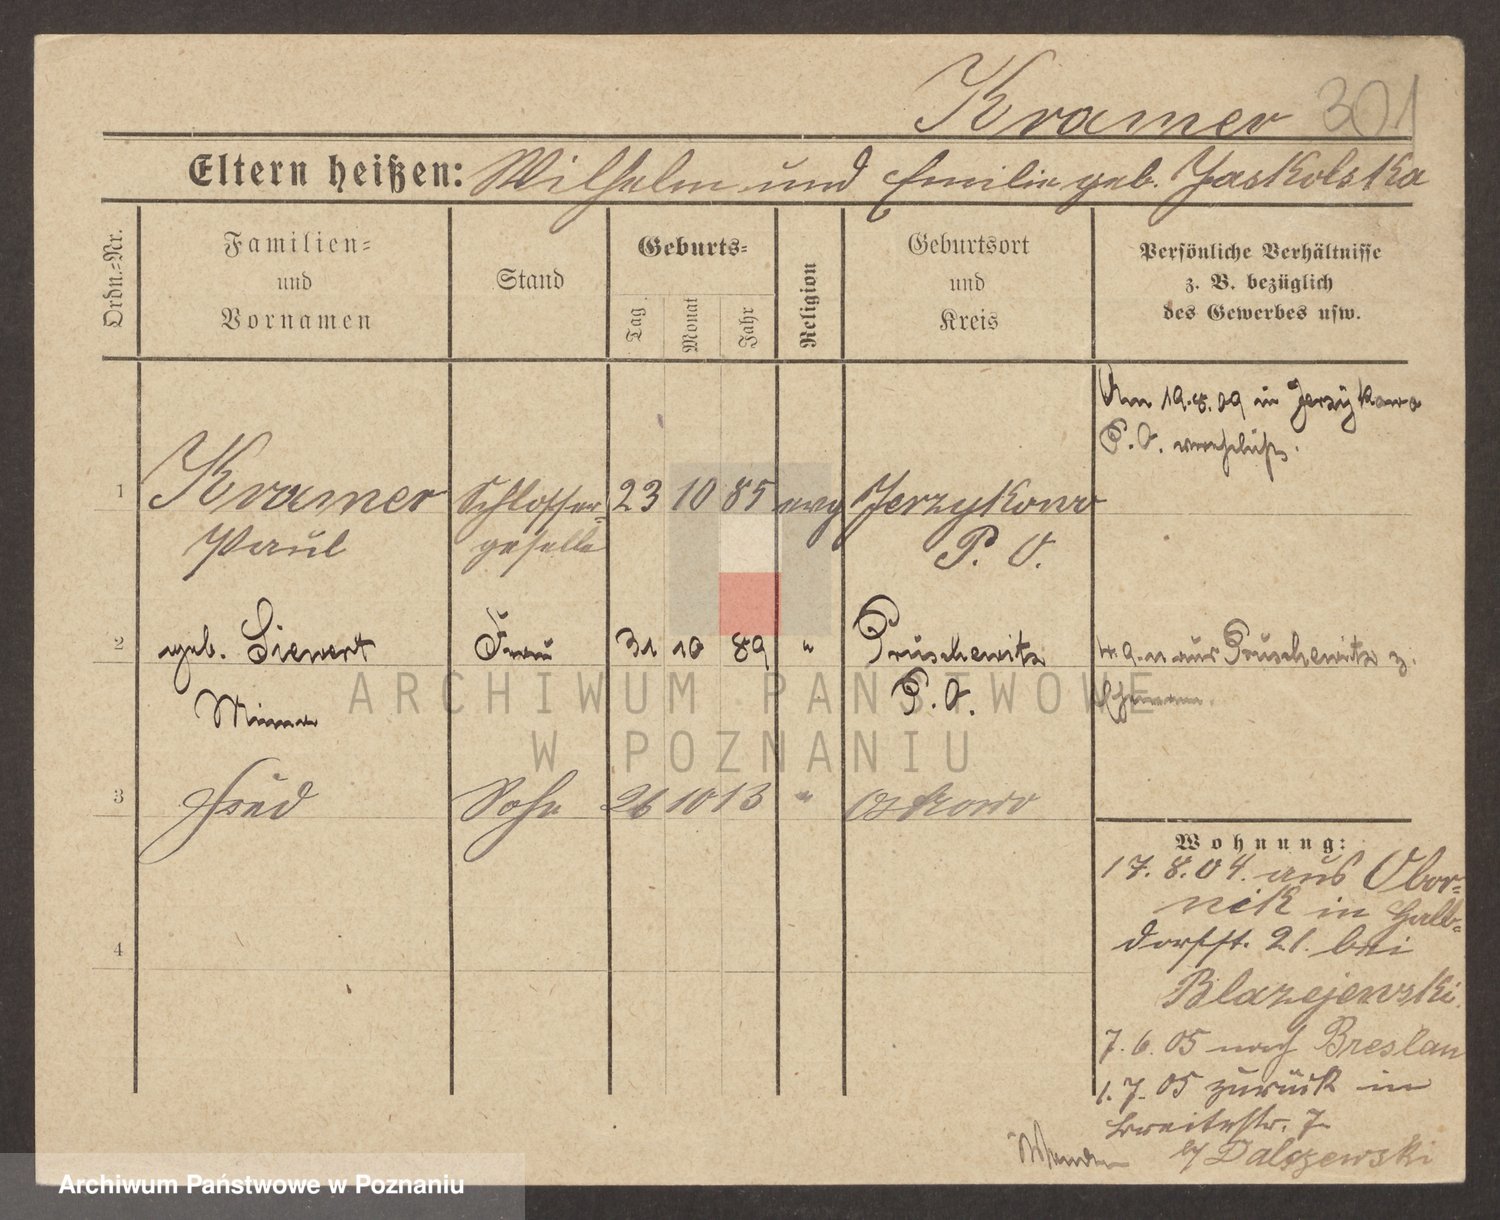 Kramer 301
Eltern heißen: Wilhelm und Emilie geb. Jaskolska
Ordn.=Nr.
Familien=
und
Vornamen
Stand
Geburts=
Tag
Monat
Jahr
Religion
Geburtsort
und
Kreis
Persönliche Verhältnisse
z. B. bezüglich
des Gewerbes usw.
Am 19.8.09 in Jerzykowo
P. O. verehelicht.
1 Kramer Schlosser= 23 10 85 evg Jerzykowo
Paul geselle P. O.
2 geb. Sievert Frau 31 10 89 " Pruschewitz aus Pruschewitz z.
Minna P. O. Ehemann.
3 Sohn 26 10 13 "
4
Wohnung:
17.8.04. aus Obor=
nik in Halb=
dorfst. 21. bei
Blazejewski
7.6.05 nach Breslau
1.7.05 zurück in
Breitestr. 7
b/ Dalszewski
ARCHIWUM PAŃSTWOWE
W POZNANIU
Archiwum Państwowe w Poznaniu